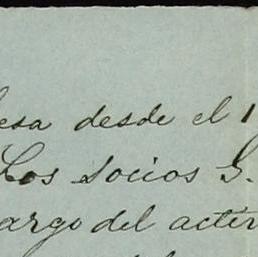 esa desde el 1
Los Socios G.
argo del actir